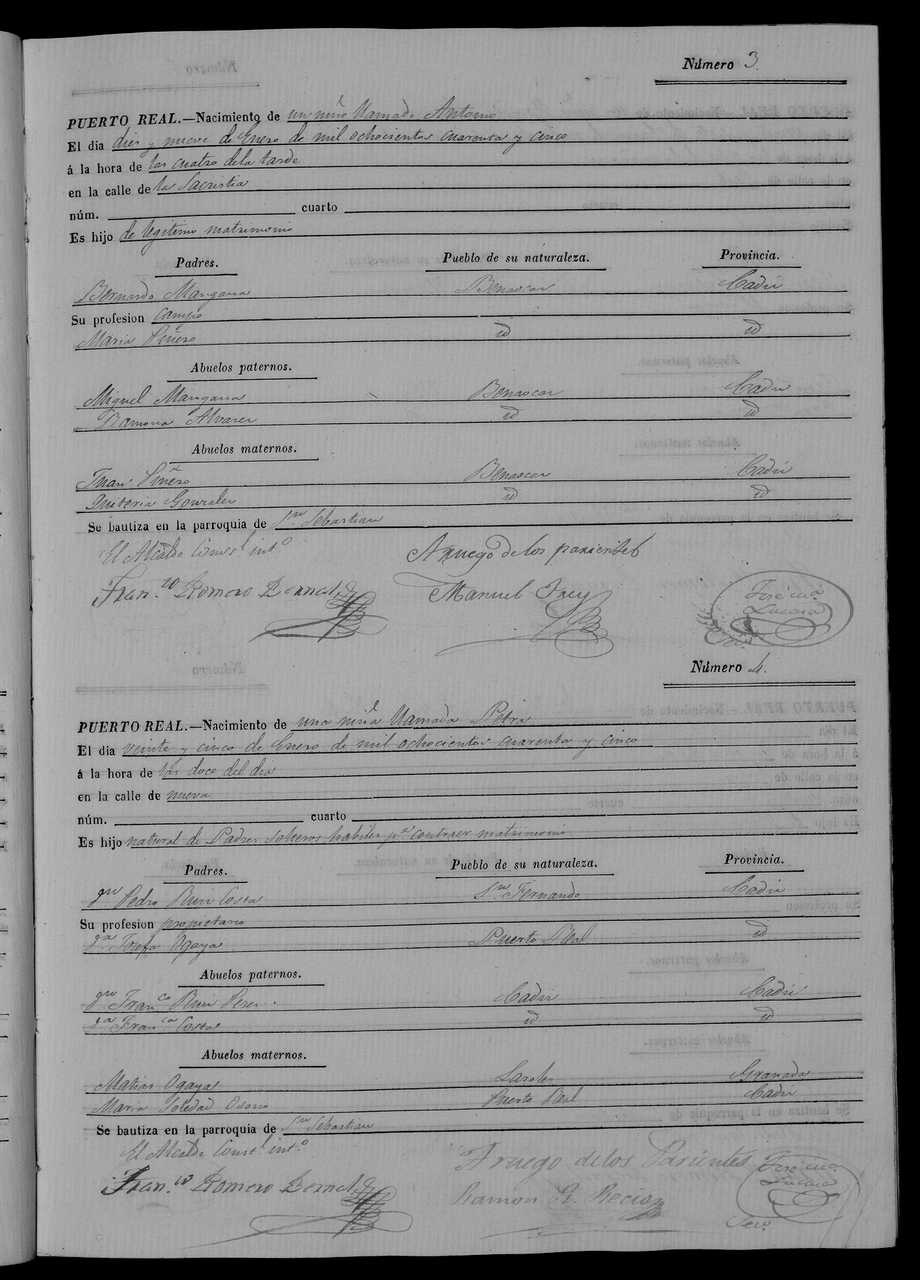 Número 3.
PUERTO REAL.—Nacimiento de un niño llamado Antonio
El dia diez y nueve de Enero de mil ochocientos cuarenta y cinco
á la hora de las cuatro de la tarde
en la calle de la Sacristia
núm. cuarto
Es hijo de legitimo matrimonio
Padres. Pueblo de su naturaleza. Provincia.
Bernardo Mangana Benaocar Cadiz
Su profesion campo
Maria Piñero id id
Abuelos paternos.
Miguel Mangana Benaocar Cadiz
Ramona Alvarez id id
Abuelos maternos.
Juan Piñero Benaocar Cadiz
Quiteria Gonzalez id id
Se bautiza en la parroquia de Sn Sebastian
El Alcalde Const. intº A ruego de los parientes
Fran.co Romero Bernal Manuel Frey
Número 4.
PUERTO REAL.—Nacimiento de una niña llamada Petra
El dia veinte y cinco de Enero de mil ochocientos cuarenta y cinco
á la hora de las doce del dia
en la calle de nueva
núm. cuarto
Es hijo natural de Padres solteros habiles pa contraer matrimonio
Padres. Pueblo de su naturaleza. Provincia.
Dn Pedro Ruiz Costa Sn Fernando Cadiz
Su profesion propietario
Da Josefa Ogaya Puerto Real id
Abuelos paternos.
Dn Franco Ruiz Perez Cadiz Cadiz
Da Franca Costa id id
Abuelos maternos.
Matias Ogaya Laroles Granada
Maria Soledad Osorio Puerto Real Cadiz
Se bautiza en la parroquia de Sn Sebastian
El Alcalde Const. intº A ruego de los Parientes
Fran.co Romero Bernal Ramon R. Recio